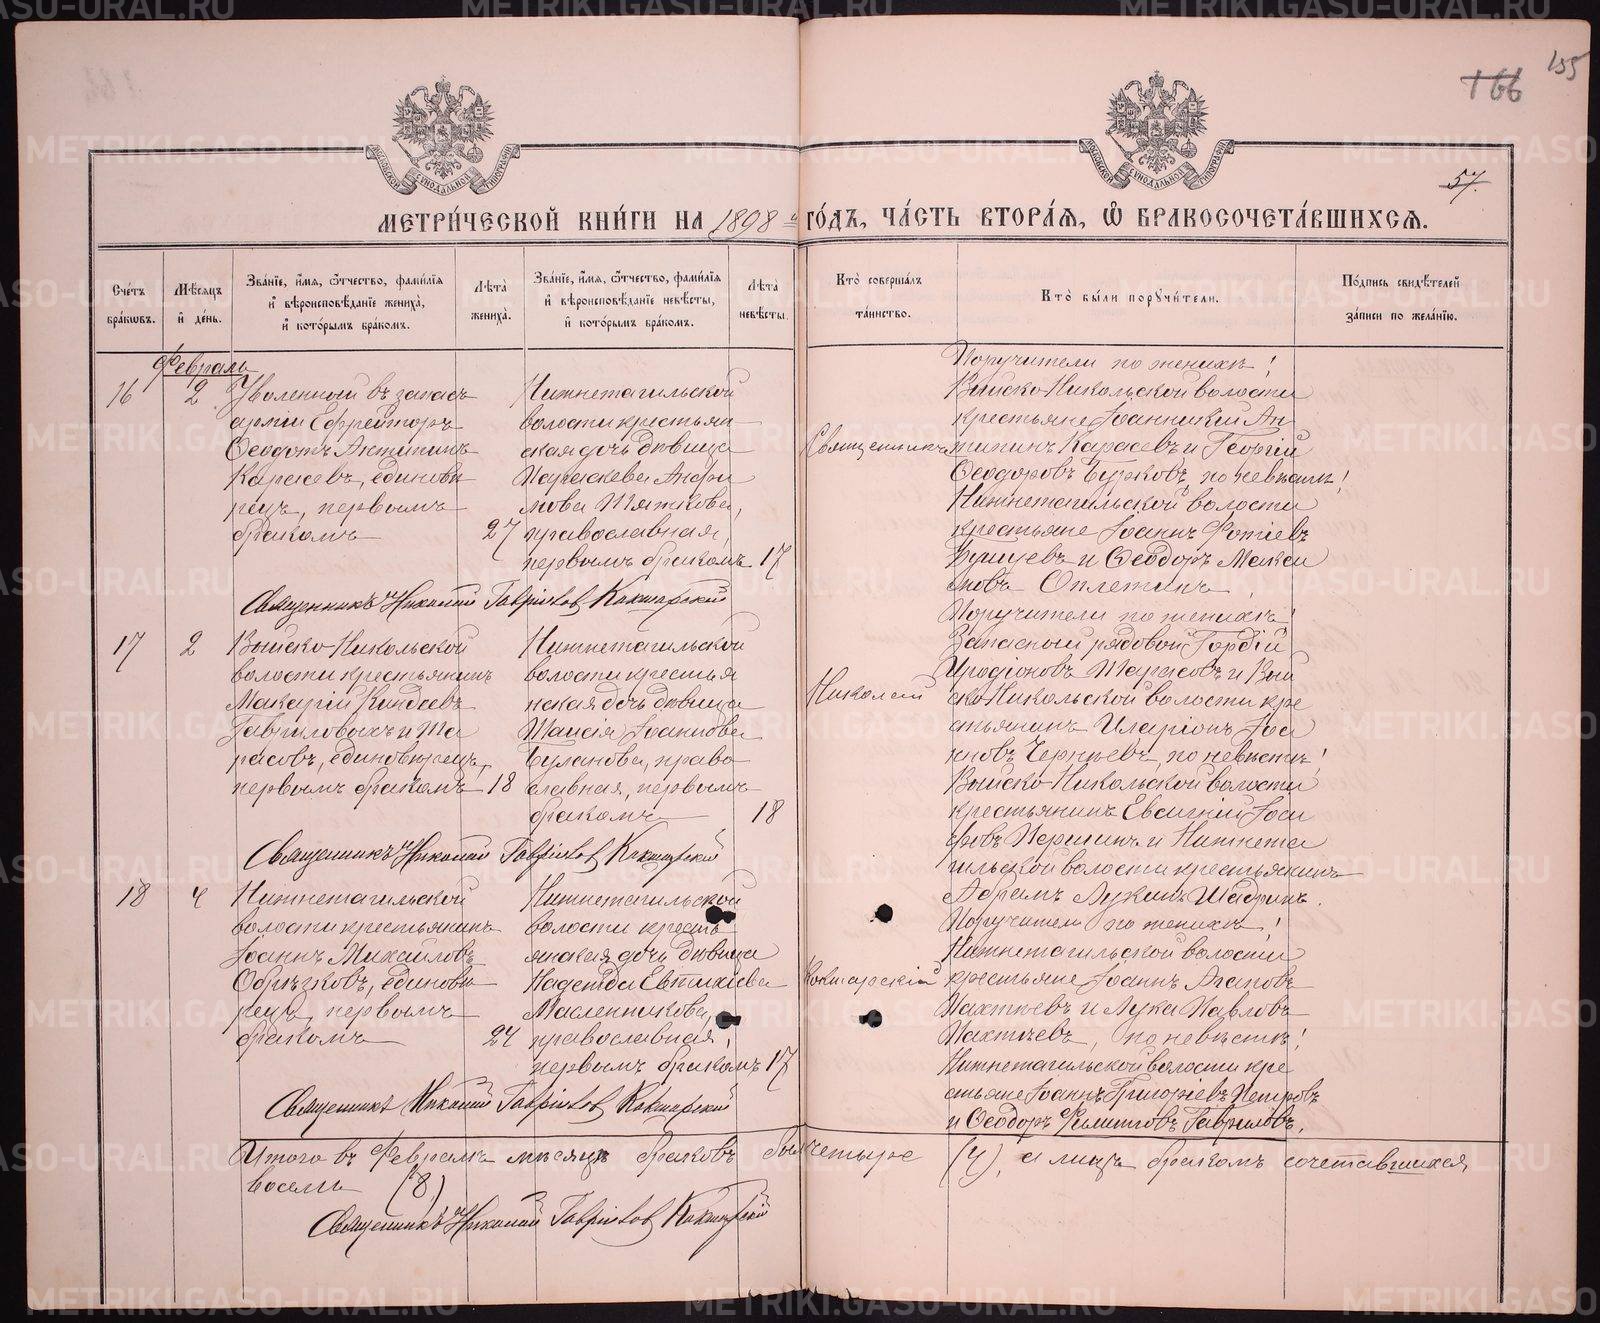 155
166
57.
МЕТРИ́ЧЕСКОЙ КНИ́ГИ НА 1898 й ГО́ДЪ, ЧА́СТЬ ВТОРА́Я, Ѿ БРАКОСОЧЕТА́ВШИХСЯ.
Сче́тъ бра́кѡвъ.
Мѣ́сяцъ и҆ де́нь.
Зва́нїе, и҆́мя, ѻ҆́тчество, фами́лїя и҆ вѣроисповѣ́данїе жениха̀, и҆ кото́рымъ бра́комъ.
Лѣ́та жениха̀.
Зва́нїе, и҆́мя, ѻ҆́тчество, фами́лїя и҆ вѣроисповѣ́данїе невѣ́сты, и҆ кото́рымъ бра́комъ.
Лѣ́та невѣ́сты.
Кто̀ соверша́лъ та́инство.
Кто̀ бы́ли порꙋчи́тели.
По́дпись свидѣ́телей за́писи по жела́нїю.
Февраль
16
2
Уволенный въ запасъ
арміи Ефрейторъ
Ѳеодотъ Антипинъ
Карасевъ, единовѣ
рецъ, первымъ
бракомъ
27
Нижнетагильской
волости крестьян
ская дочь дѣвица
Параскева Анфи
мова Тяткова,
православная,
первымъ бракомъ
17
Священникъ
Поручители по женихѣ!
Выйско-Никольской волости
крестьяне Іоанникій Ан
типинъ Карасевъ и Георгій
Ѳеодоровъ Бурковъ, по невѣстѣ!
Нижнетагильской волости
крестьяне Іоаннъ Фотіевъ
и Ѳеодоръ Макси
мовъ Оплетинъ.
Священникъ Николай Гавріиловъ Кокшарскій
17
2
Выйско-Никольской
волости крестьянинъ
Макарій
Гавриловыхъ и Та
расовъ, единовѣрецъ,
первымъ бракомъ
18
Нижнетагильской
волости крестья
нская дочь дѣвица
Таисія Іоаннова
Буланова, право
славная, первымъ
бракомъ
18
Николай
Поручители по женихѣ!
Запасный рядовой Гордій
Иродіоновъ Тарасовъ и Вый
ско Никольской волости кре
стьянинъ Иларіонъ Іоа
нновъ по невѣстѣ!
Выйско-Никольской волости
крестьянинъ Евгеній Іоси
фовъ Першинъ и Нижнета
гильской волости крестьянинъ
Абрамъ Лукинъ Шадринъ.
Священникъ Николай Гавріиловъ Кокшарскій
18
4
Нижнетагильской
волости крестьянинъ
Іоаннъ Михаиловъ
Обрѣзковъ, единовѣ
рецъ, первымъ
бракомъ
24
Нижнетагильской
волости кресть
янская дочь дѣвица
Надежда Евтихіева
Масленникова,
православная,
первымъ бракомъ
17
Кокшарскій
Поручители по женихѣ!
Нижнетагильской волости
крестьяне Іоаннъ Агаповъ
Пахтѣевъ и Лука Павловъ
Пахтѣевъ, по невѣстѣ!
Нижнетагильской волости кре
стьяне Іоаннъ Григоріевъ Петровъ
и Ѳеодоръ Филипповъ Гавриловъ.
Священникъ Николай Гавріиловъ Кокшарскій
Итого въ Февралѣ мѣсяцѣ браковъ было четыре (4), а лицъ бракомъ сочетавшихся,
восемь (8)
Священникъ Николай Гавріиловъ Кокшарскій
METRIKI.GASO-URAL.RU